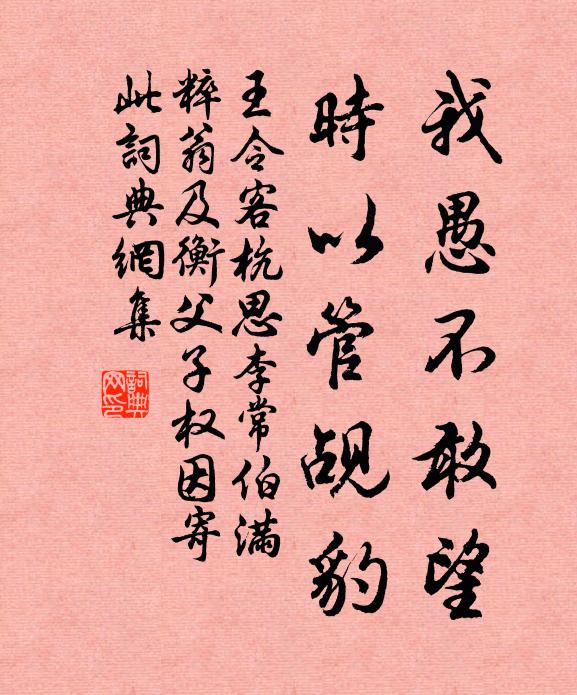 我愚不敢望
時以管觇豹
王令客杭思李常伯满
粹翁及衡父子权因寄
此詞典網集
詞典网印